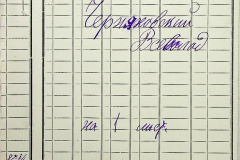 Черняховский
Всеволод
на 1 лист.